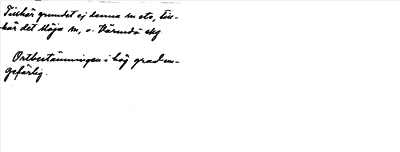 Tillhör grundet ej denna m etc, till-
hör det Möja m, o. Värmdö skg
Ortbestämningen i hög grad un-
gefärlig.